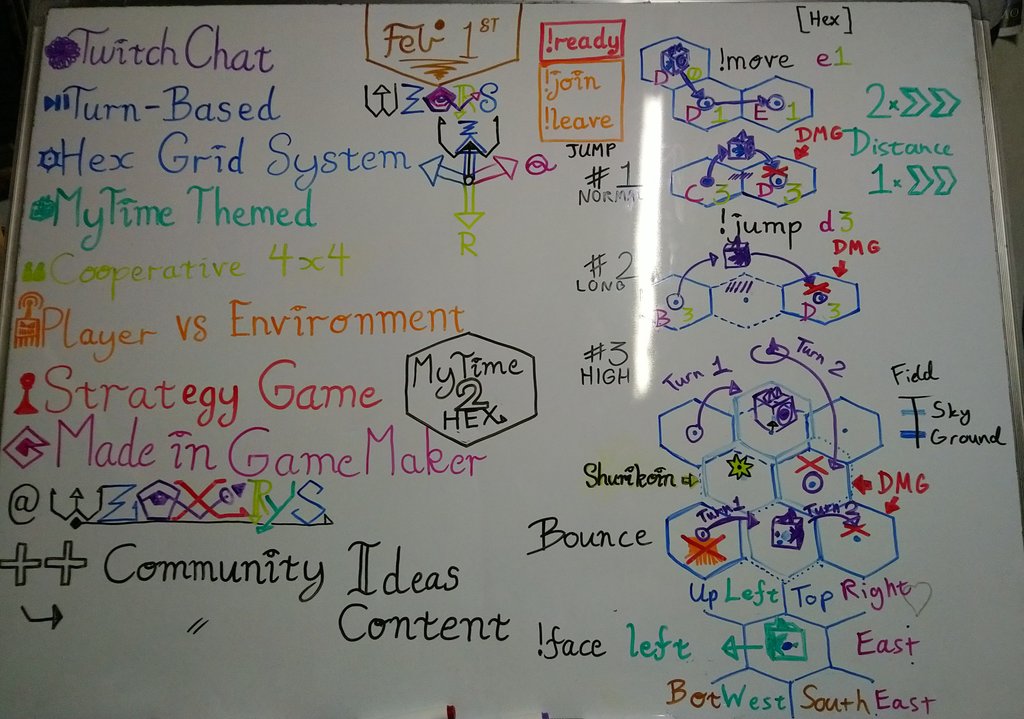 Twitch Chat
Turn-Based
Hex Grid System
MyTime Themed
Cooperative 4x4
Player vs Environment
Strategy Game
Made in GameMaker
++ Community Ideas
〃 Content
Feb 1ST
R
MyTime
2
HEX
!ready
!join
!leave
[Hex]
!move e1
D 0
D 1 E 1
2x
Distance
1x
JUMP
#1
NORMAL
DMG
C 3 D 3
!jump d3
#2
LONG
DMG
B 3 D 3
#3
HIGH
Turn 1
Turn 2
Field
Sky
Ground
Shurikoin
DMG
Bounce
Turn 1
Turn 2
Up Left
Top Right
!face left
East
BotWest
SouthEast